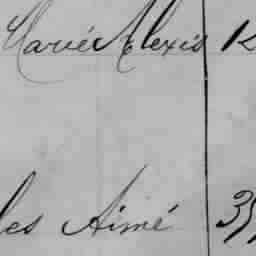 Marie Alexis
les Aimé